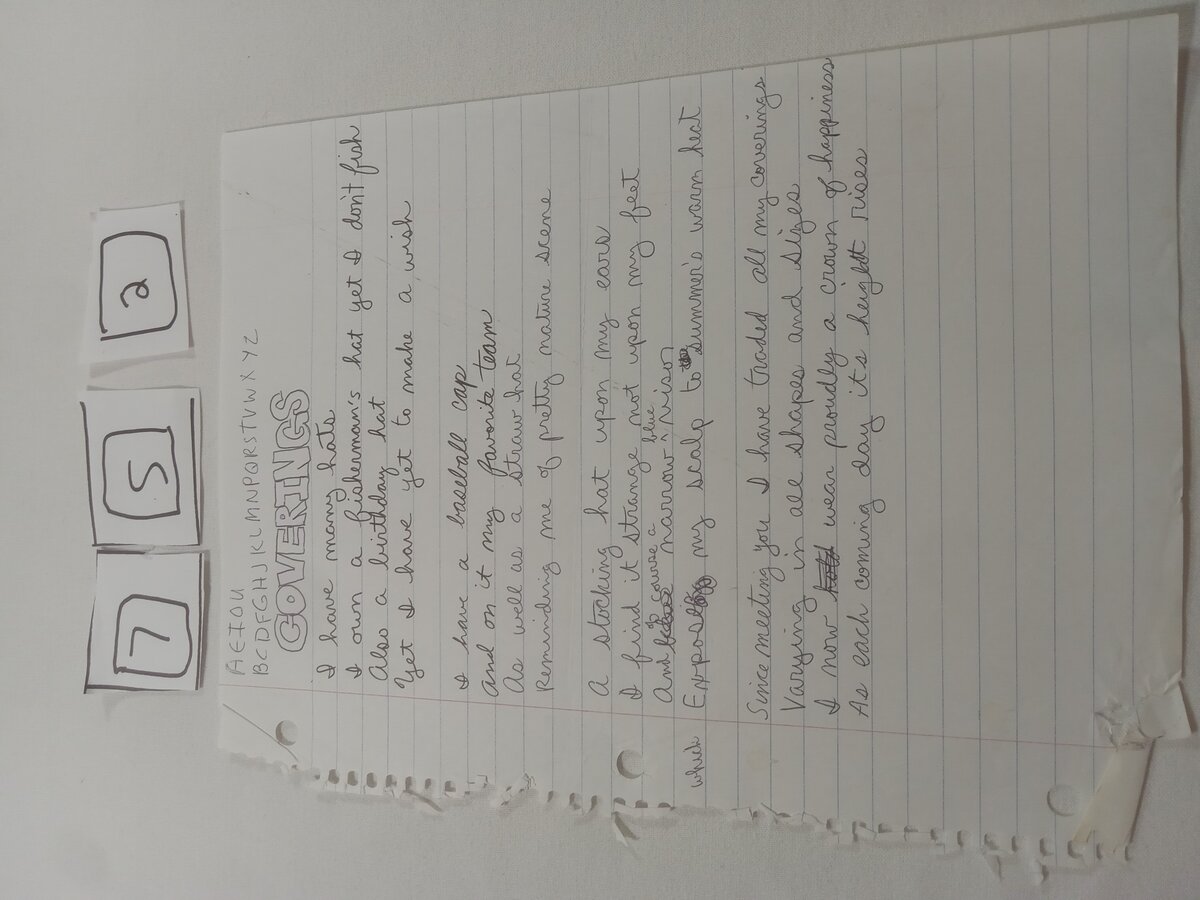 7 5 2
A E I O U
B C D F G H J K L M N P Q R S T V W X Y Z
COVERINGS
I have many hats
I own a fisherman's hat yet I don't fish
Also a birthday hat
Yet I have yet to make a wish
I have a baseball cap
And on it my favorite team
As well as a straw hat
Reminding me of pretty nature scene
A stocking hat upon my ears
I find it strange not upon my feet
And of course a narrow blue visor
which Expos my scalp to summer's warm heat
Since meeting you I have traded all my coverings
Varying in all shapes and sizes
I now wear proudly a crown of happiness
As each coming day it's height rises